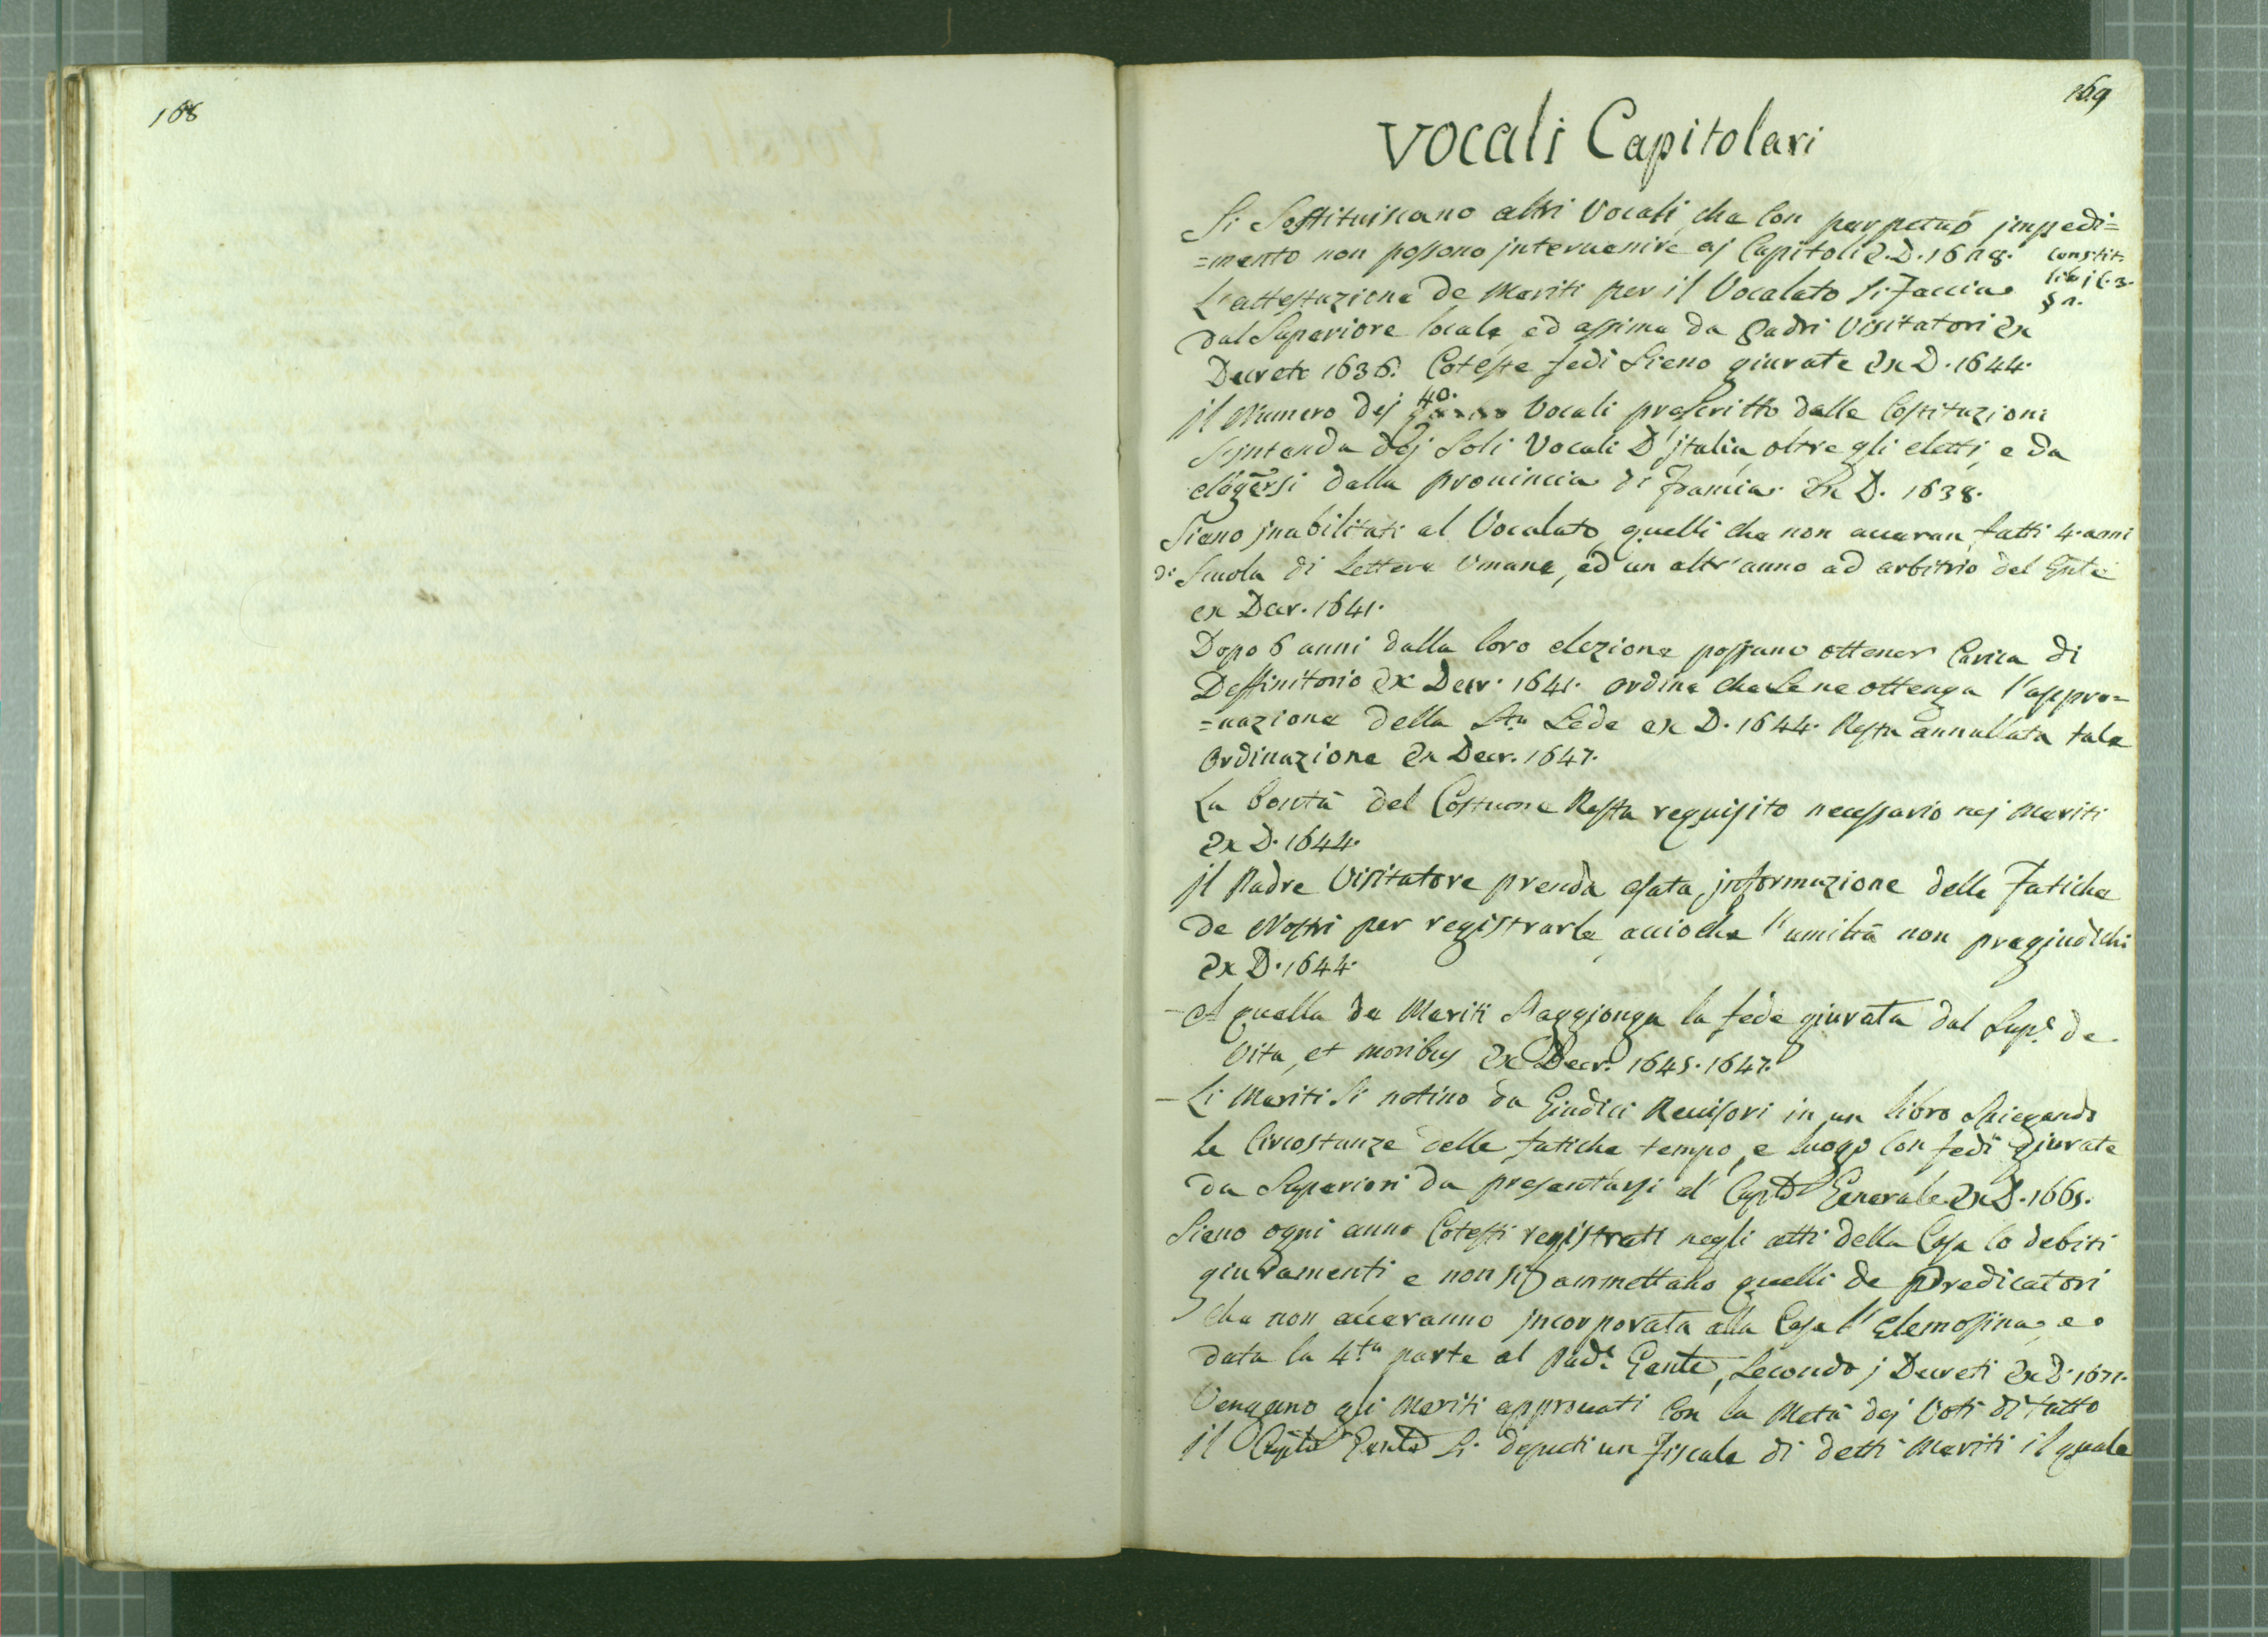 168
169
Vocali Capitolari
Si Sostituiscano altri Vocali, che con perpetuo jmpedi=
=mento non possono jntervenire aj Capitoli D. 1628. Constit.
lib. j C. 3.
L'attestazione de Meriti per il Vocalato si Faccia
dal Superiore locale, ed assieme da Padri Visitatori Ex
Decreto 1636. Coteste fedi Sieno giurate Ex D. 1644.
40.
jl Numero dej Vocali prescritto dalle Costituzioni
S'jntenda dej Soli Vocali D'jtalia, oltre gli eletti, e da
elegersi dalla prouincia di Francia. Ex D. 1638.
Sieno jnabilitati al Vocalato, quelli che non aueran fatti 4. anni
di Scuola di Lettere Umane, ed un altr'anno ad arbitrio del Gnte
ex Decr. 1641.
Dopo 6 anni dalla loro elezione possano ottener Carica di
Deffinitorio Ex Decr. 1641. ordina che Se ne ottenga l'appro=
=uazione della Sta Sede ex D. 1644. Resta annullata tale
Ordinazione Ex Decr. 1647.
La bontà del Costume Resta requisito necessario nej Meriti
Ex D. 1644.
jl Padre Visitatore prenda esata jnformazione delle Fatiche
de Nostri per registrarle, accioche l'umiltà non pregiudichi
Ex D. 1644.
– A quella de Meriti S'aggionga la fede giurata dal Supe. de
Vita, et moribus Ex Decr. 1645. 1647.
– Li Meriti Si notino da Giudici Reuisori in un libro Spiegando
le Circostanze delle fatiche tempo, e luogo con fedi giurate
da Superiori da presentarsi al Capto Generale. Ex D. 1665.
Sieno ogni anno Cotesti registrati negli atti della Casa co debiti
giuramenti, e non si ammettano quelli de Predicatori
che non aueranno jncorporata alla Casa l'Elemosina, e
data la 4.ta parte al Pade. Gente, Secondo j Decreti Ex D. 1671.
Vengano gli Meriti approuati con la Metà dej Voti di tutto
jl Capto Genle Si deputi un Fiscale di detti Meriti il quale